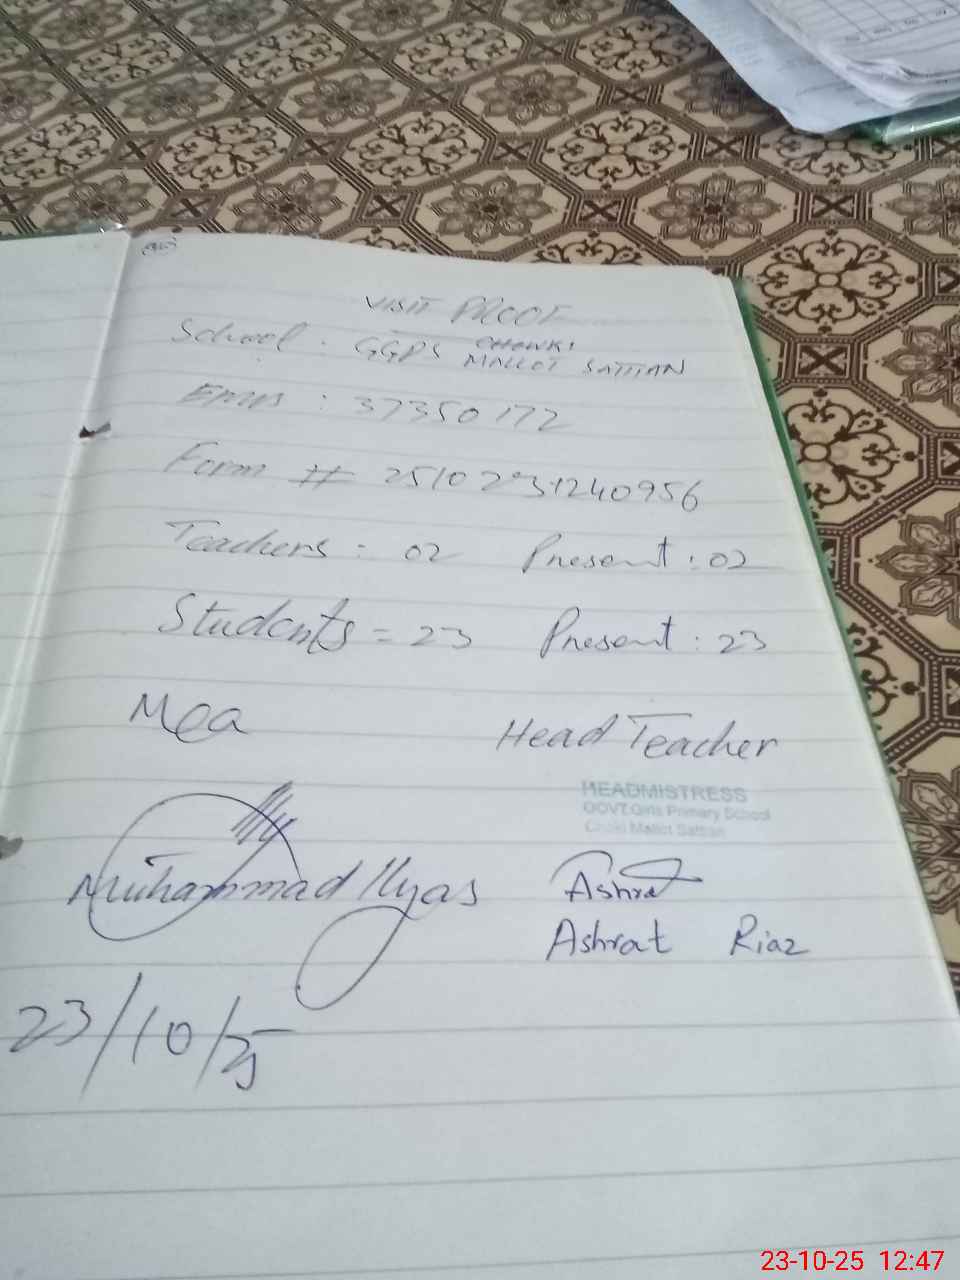 VISIT PROOF
School : GGPS CHOWKI
MALLOT SATTIAN
Emis : 37350172
Form # 2510231240956
Teachers : 02 Present : 02
Students = 23 Present : 23
Mea Head Teacher
HEADMISTRESS
GOVT.Girls Primary School
Choki Mallot Sattian
Muhammad Ilyas Ashrat
Ashrat Riaz
23/10/25
23-10-25 12:47